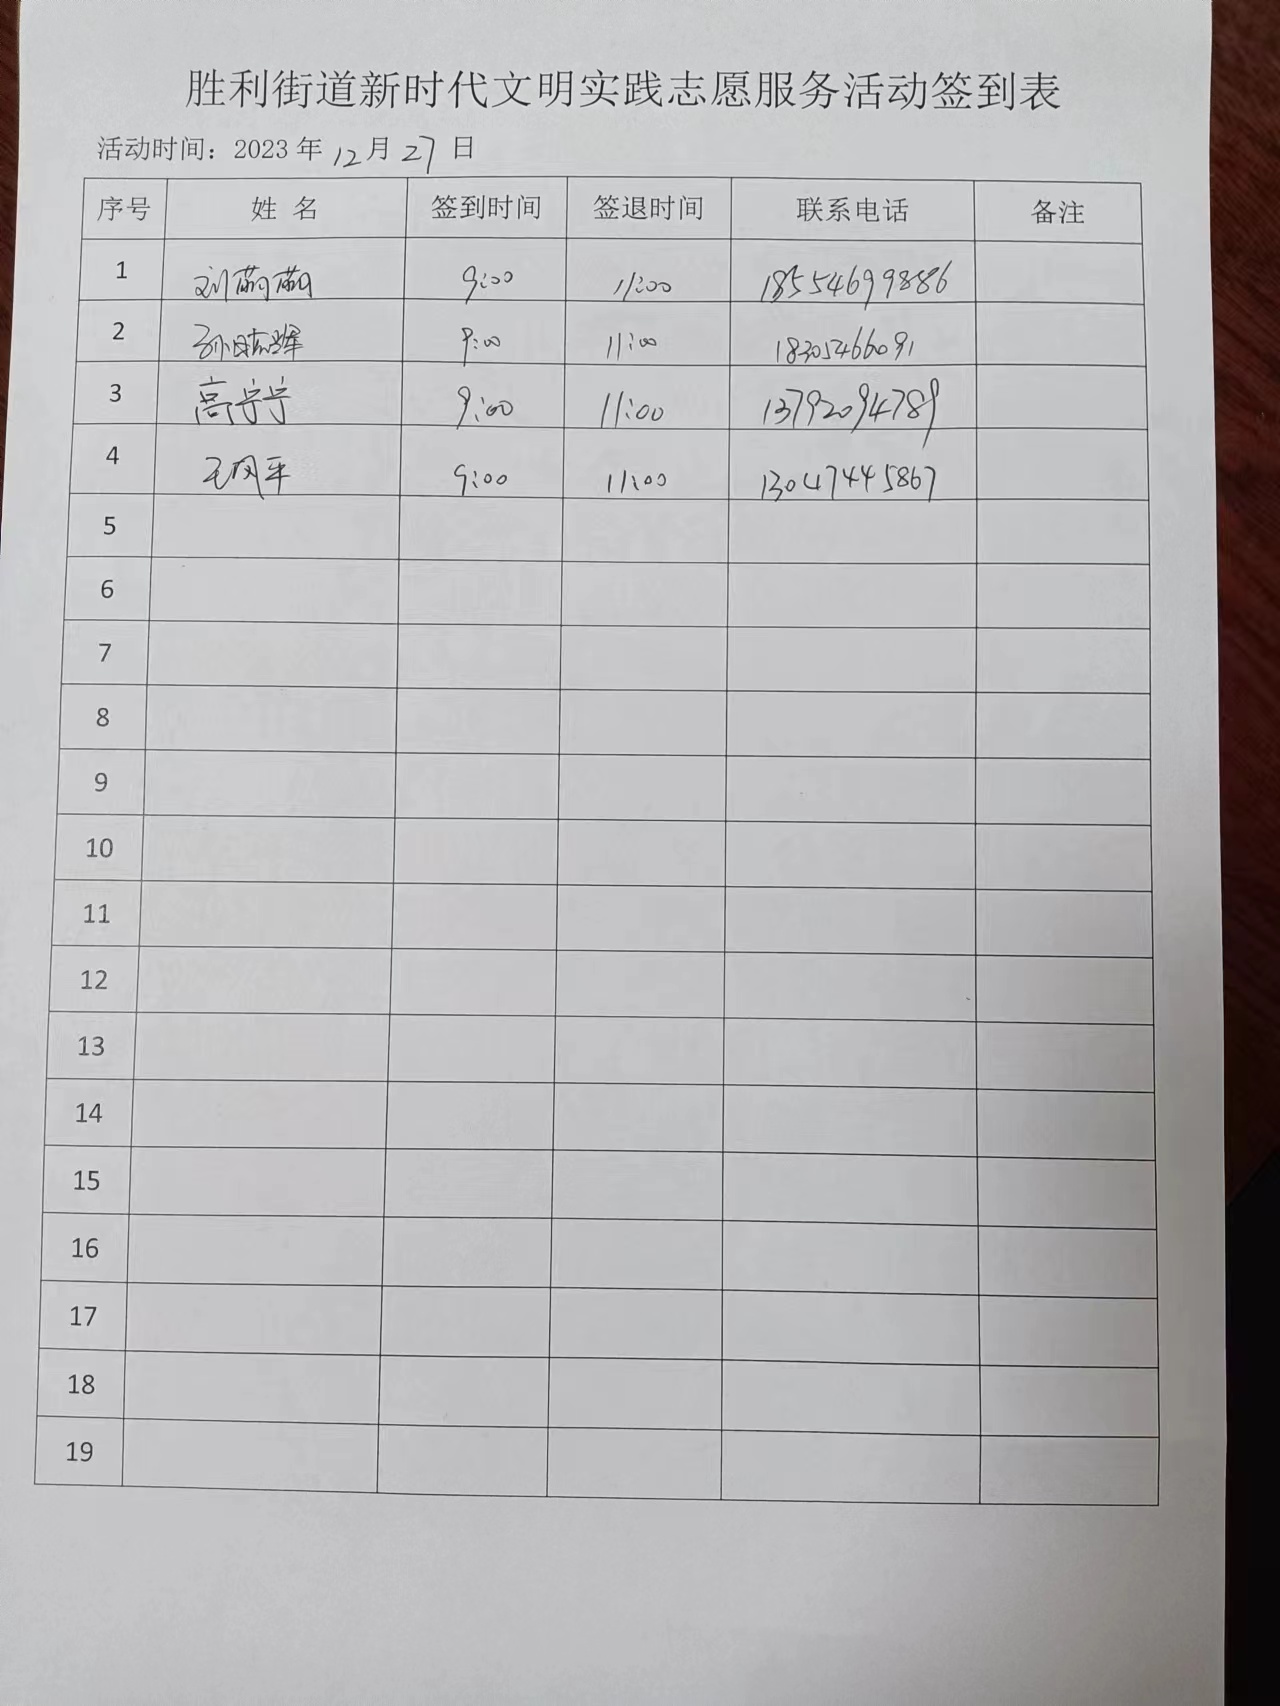 胜利街道新时代文明实践志愿服务活动签到表
活动时间：2023 年 12 月 27 日
序号 姓 名 签到时间 签退时间 联系电话 备注
1 刘萌萌 9:00 11:00 18554699886
2 孙 9:00 11:00 18305466091
3 高宁宁 9:00 11:00 13792094789
4 王风平 9:00 11:00 13047445867
5
6
7
8
9
10
11
12
13
14
15
16
17
18
19